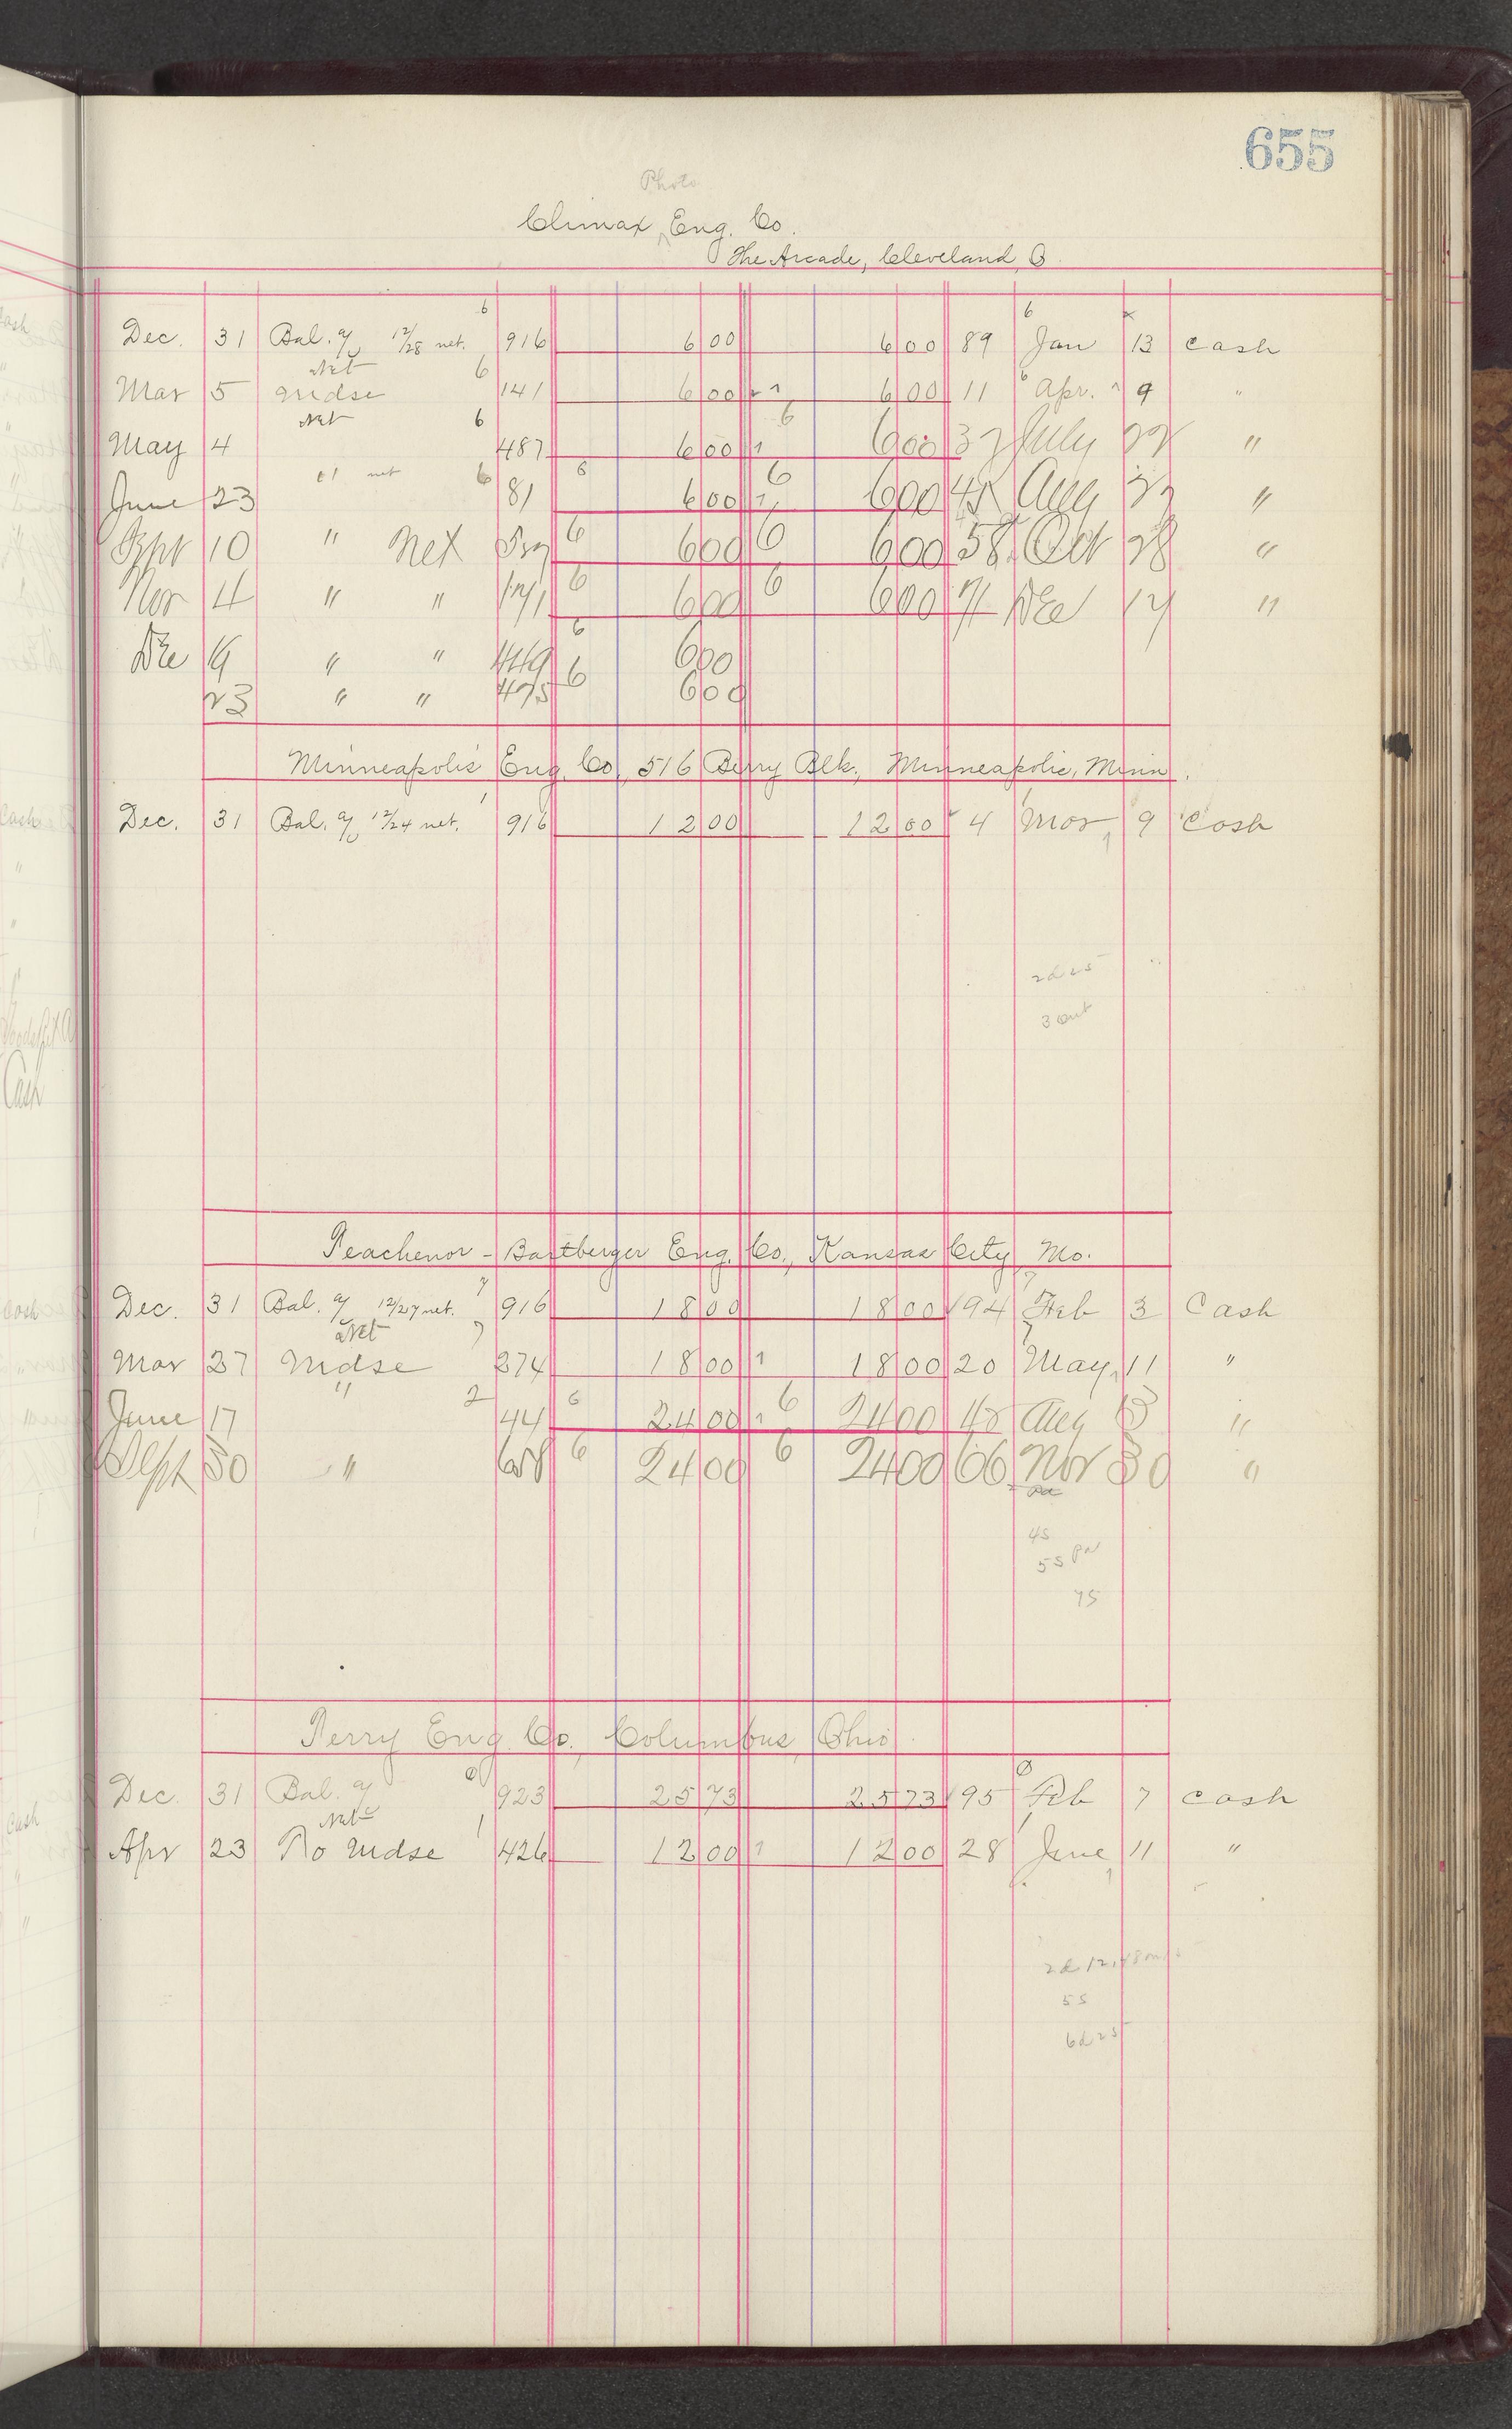 655
Photo
Climax ^ Eng. Co.
The Arcade, Cleveland, O
6 6
Dec. 31 Bal. of 12/28 net. 916 6 00 6 00 89 Jan 13 Cash
Net 6
Mar 5 Mdse 141 6 00 6 00 11 Apr. 9 "
Net 6 6
May 4 487 6 00 6 00 37 July 22 "
net 6 6 6
June 23 81 6 00 6 00 Aug "
Sept 10 " Net 6 6 00 6 6 00 58 Oct 28 "
Nov 4 " " 171 6 6 00 6 6 00 71 Dec 17 "
6
Dec 19 " " 449 6 00
23 " " 475 6 6 00
Minneapolis Eng. Co., 516 Berry Blk., Minneapolis, Minn.
Dec. 31 Bal. of 12/24 net. 916 12 00 12 00 4 Mar 9 Cash
2d 25
3 out
Teachenor - Bartberger Eng. Co., Kansas City, Mo.
Dec. 31 Bal. of 12/27 net. 7 916 18 00 18 00 94 Feb 3 Cash
Net 7 7
Mar 27 Mdse 274 18 00 18 00 20 May 11 "
" 2 6 6
June 17 44 24 00 24 00 Aug 13 "
Sept 30 " 6 24 00 6 24 00 66 Nov 30 "
4s
5s
7s
Terry Eng. Co., Columbus, Ohio.
Dec. 31 Bal. of 923 25 73 25 73 95 Feb 7 Cash
Net 1
Apr 23 To Mdse 426 12 00 12 00 28 June 11 "
2d 12,
5s
6d 25